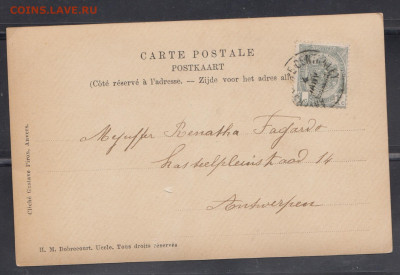 COINS.LAVE.RU
CARTE POSTALE
POSTKAART
(Côté réservé à l'adresse. — Zijde voor het adres alle
Mejuffer Renatha Fagardo
Kasteelpleinstraat 14
Antwerpen
Cliché Gustave Pirot, Anvers.
H. M. Debrocourt, Uccle. Tous droits réservés